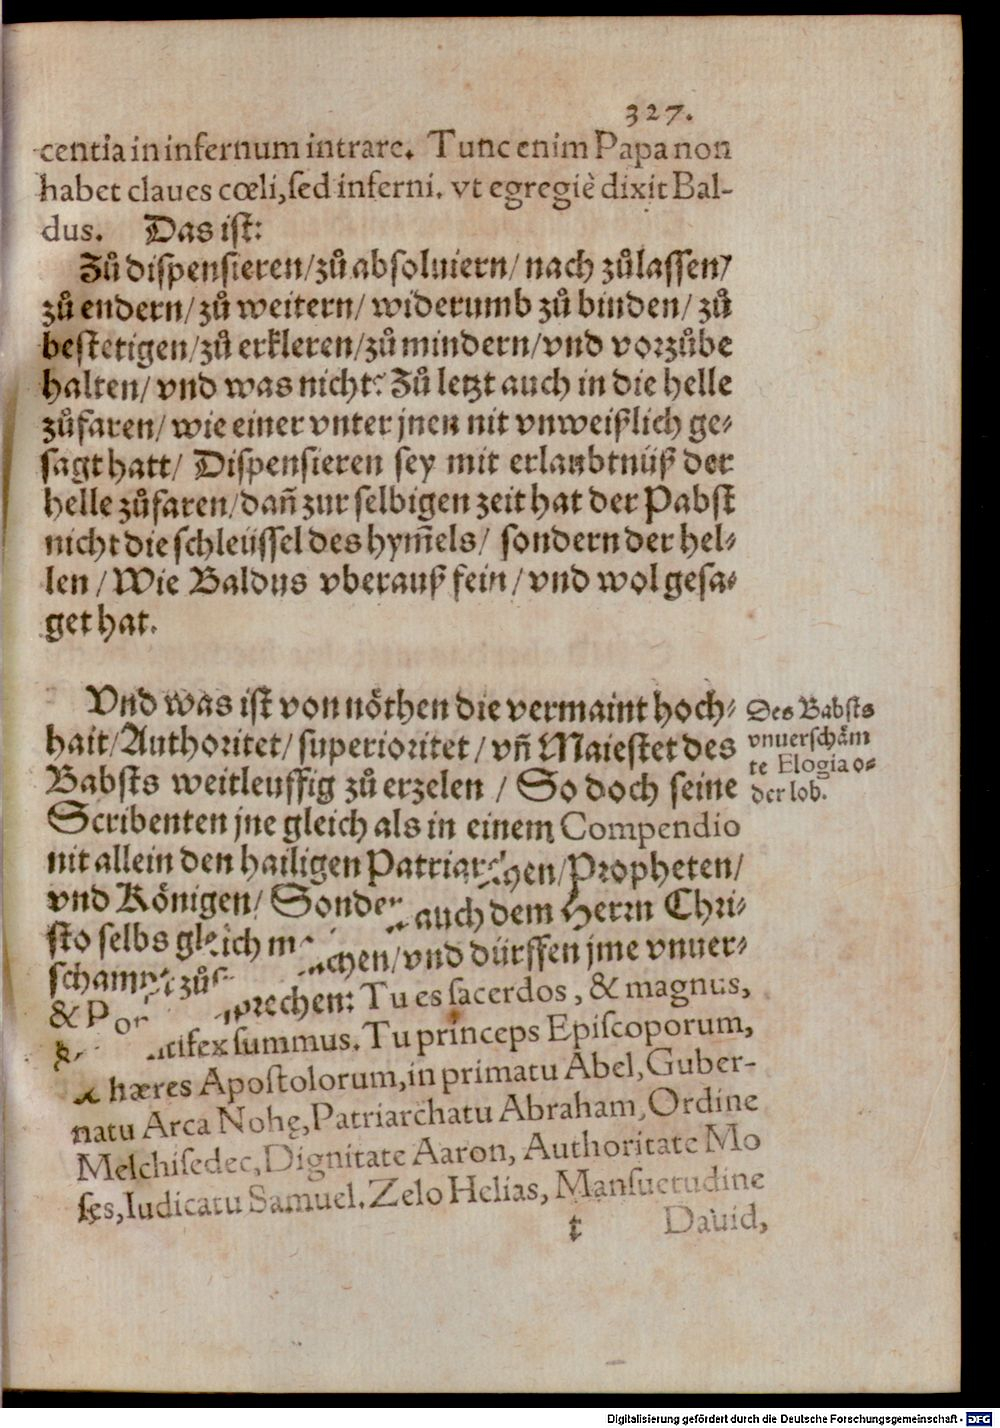 327.
centia in infernum intrare. Tunc enim Papa non
habet claues cœli, sed inferni. vt egregiè dixit Bal-
dus. Das ist:
Zů dispensieren/zů absoluiern/nach zůlassen/
zů endern/zů weitern/widerumb zů binden/zů
bestetigen/zů erkleren/zů mindern/vnd vorzůbe
halten/vnd was nicht? Zů letzt auch in die helle
zůfaren/wie einer vnter jnen nit vnweißlich ge-
sagt hatt/ Dispensieren sey mit erlaubtnüß der
helle zůfaren/dañ zur selbigen zeit hat der Pabst
nicht die schleüssel des hym̃els/ sondern der hel-
len/Wie Baldus vberauß fein/vnd wol gesa-
get hat.
Vnd was ist von nöthen die vermaint hoch-
hait/Authoritet/superioritet/vñ Maiestet des
Babsts weitleuffig zů erzelen/So doch seine
Scribenten jne gleich als in einem Compendio
nit allein den hailigen Patriarchen/Propheten/
vnd Königen/Sonder auch dem Herrn Chri-
sto selbs gleich machen/vnd dürffen jme vnuer-
zůsprechen: Tu es sacerdos, & magnus,
& summus. Tu princeps Episcoporum,
hæres Apostolorum, in primatu Abel, Guber-
natu Arca Nohę, Patriarchatu Abraham, Ordine
Melchisedec, Dignitate Aaron, Authoritate Mo
ses, Iudicatu Samuel. Zelo Helias, Mansuetudine
t Dauid,
Des Babsts
vnuerschäm
te Elogia o-
der lob.
Digitalisierung gefördert durch die Deutsche Forschungsgemeinschaft - DFG